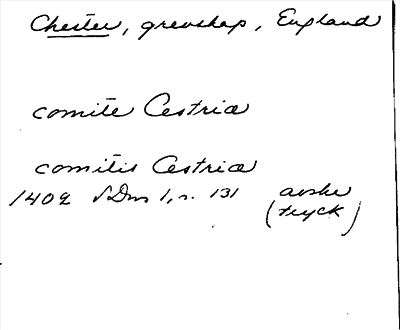 Chester, grevskap, England
comite Cestrie
comitis Cestrie
1402 SDns 1, s. 131 avskr
(tryck)